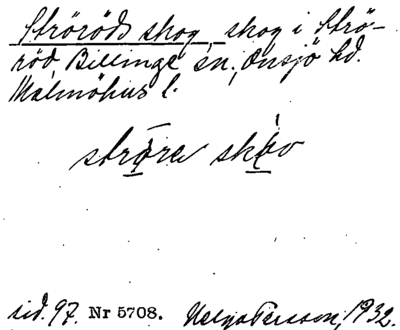 Ströröds skog, skog i Strö-
röd, Billinge sn., Onsjö hd.
Malmöhus l.
ströra skov
sid. 97. Nr 5708. Helga Persson, 1932.